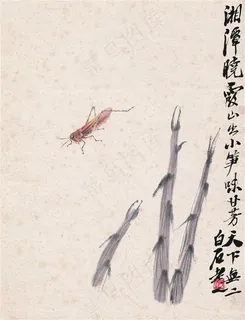 湘潭晓霞山出小笋味甘芳天下无二
白石老人